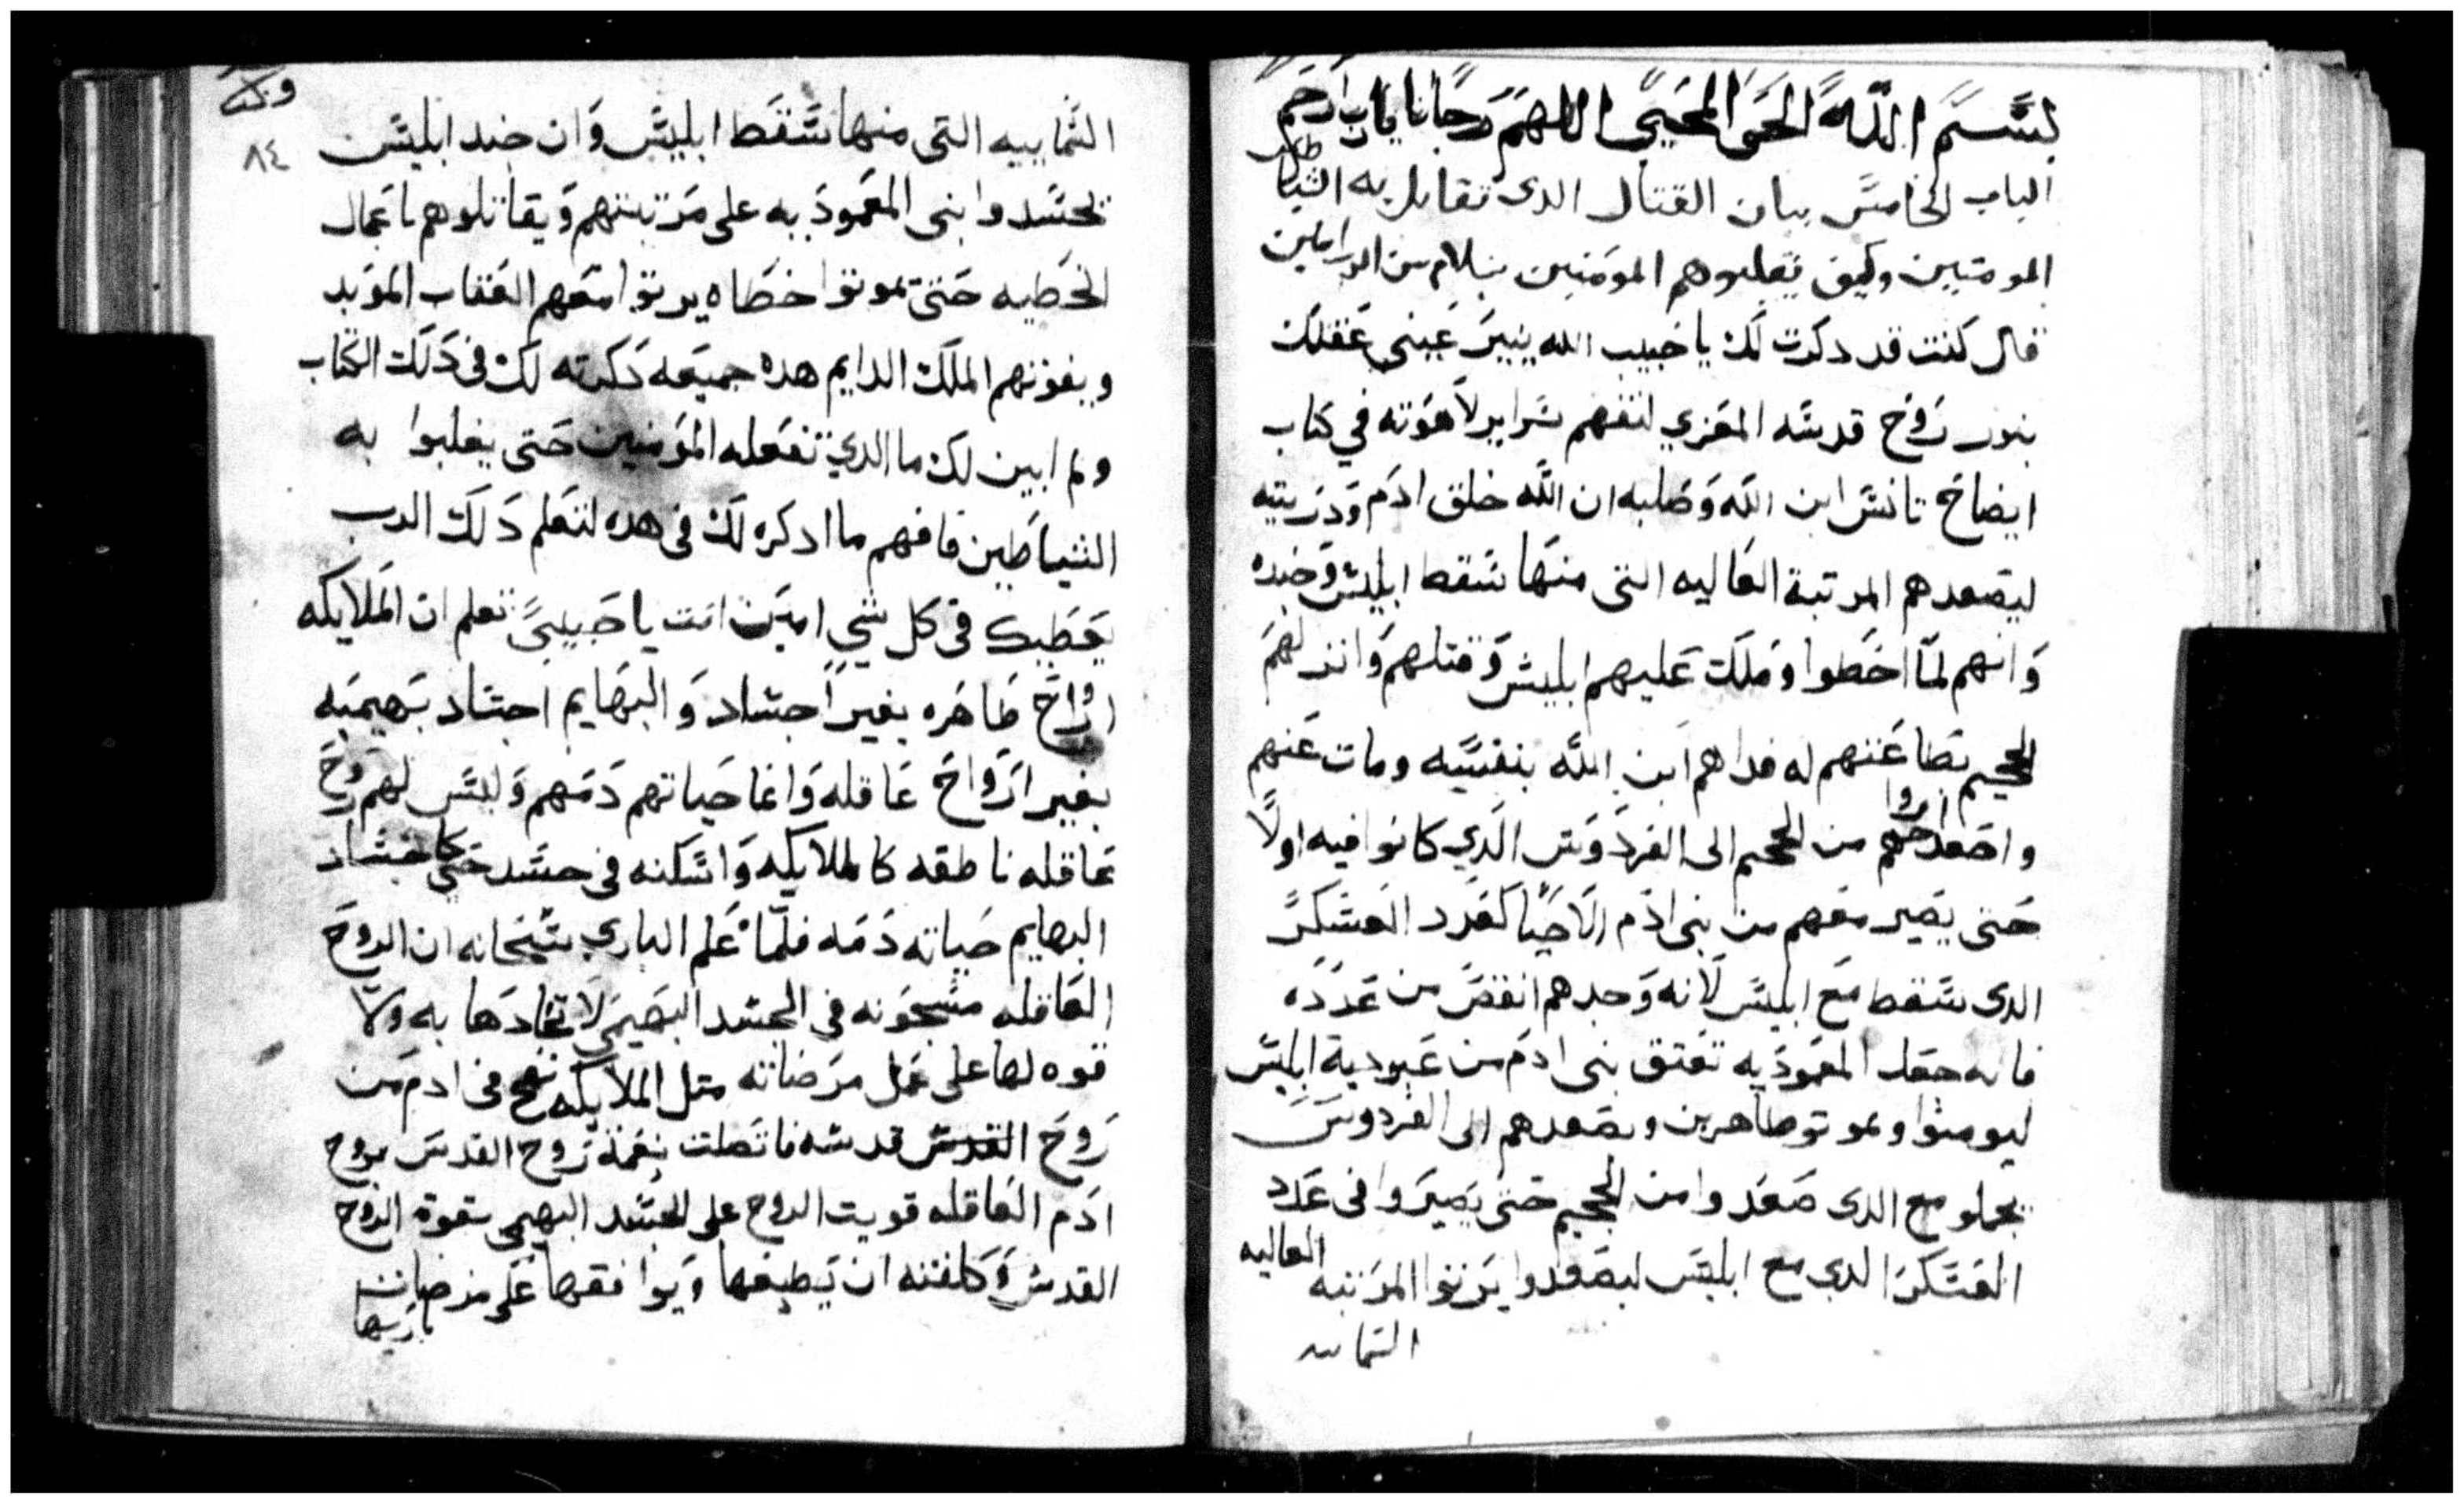 بسم الله الحي المحيي اللهم رجانا يارب ارحم
الباب الخامس بيان القتال الدى تقابل به الشياطين
المومنين وكيف يغلبوهم المومنين بسلام من الرب امين
قال كنت قد دكرت لك يا حبيب الله ينير عيني عقلك
بنور روح قدسه المعزي لتفهم سراير لاهوته في كتاب
ايضاح تانس ابن الله وصلبه ان الله خلق ادم ودريته
ليصعدهم المرتبة العاليه التى منها سقط ابليس وجنده
وانهم لما اخطوا وملك عليهم ابليس وقتلهم وانزلهم
الجحيم بطاعتهم له فداهم ابن الله بنفسه ومات عنهم
واصعد ارواحهم من الجحيم الى الفردوس الدي كانوا فيه اولا
حتى يصير معهم من بنى ادم الاحيا كعدد العسكر
الدى سقط مع ابليس لانه وجدهم انقص من عدده
فانه جعل المعموديه تعتق بنى ادم من عبودية ابليس
ليومنوا ويموتو طاهرين ويصعدهم الى الفردوس
يجملو مع الدى صعدوا من الجحيم حتى يصيروا فى عدد
العسكر الدي مع ابليس ليصعدوا يرتوا المرتبه العاليه
السماييه
وكتا
٨٤
السماييه التى منها سقط ابليس وان جند ابليس
يحسدوا بنى المعموديه على مرتبتهم ويقاتلوهم باعمال
الخطيه حتى يموتوا خطاه يرتوا معهم العقاب الموبد
ويفوتهم الملك الدايم هده جميعه دكرته لك فى دلك الكتاب
ولم ابين لك ما الدي تفعله المومنين حتى يغلبوا به
الشياطين فافهم ما ادكره لك فى هده لتعلم دلك الرب
يعطيك فى كل شي امين انت يا حبيبي تعلم ان الملايكه
ارواح طاهره بغير اجساد والبهايم اجساد بهيميه
بغير ارواح عاقله وانما حياتهم دمهم وليس لهم روح
عاقله ناطقه كالملايكه واسكنه فى جسد حي كاجساد
البهايم حياته دمه فلما علم الباري سبحانه ان الروح
العاقله مسجونه في الجسد البهيمي لاتحادها به ولا
قوه لها على عمل مرضاته متل الملايكه نفخ فى ادم من
روح القدس قدسه فاتصلت بنعمة روح القدس بروح
ادم العاقله قويت الروح على الجسد البهيمي بقوة الروح
القدس وكلفته ان يطيعها ويوافقها على مرضات
باريها